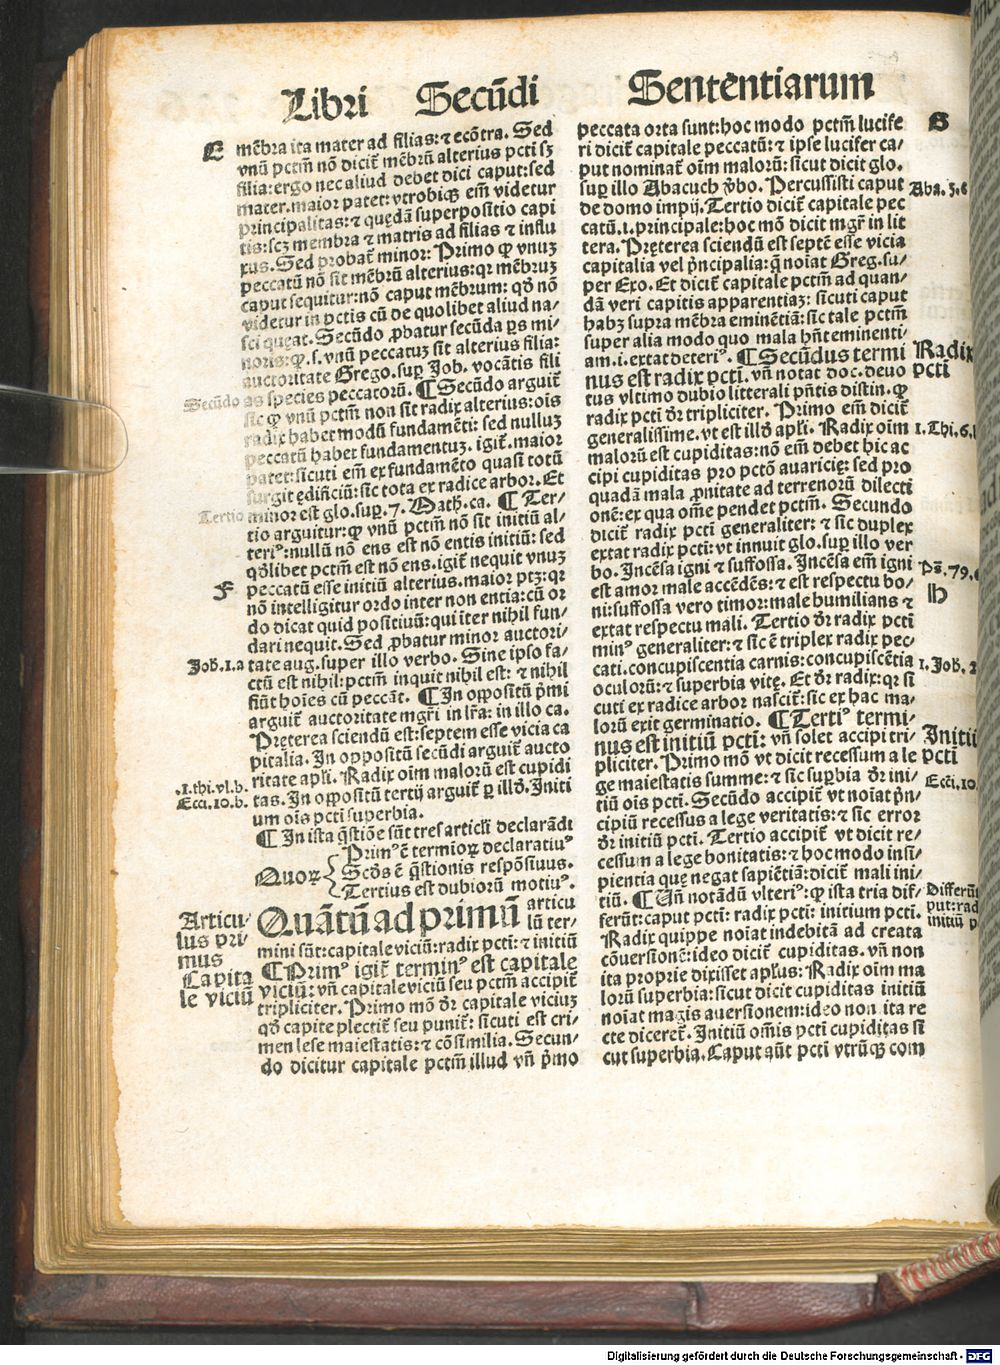 Libri Secūdi Sententiarum
E
mēbra ita mater ad filias: ⁊ ecōtra. Sed
vnū pctm̄ nō dicit̄ mēbrū alterius pcti sꝫ
filia: ergo nec aliud debet dici caput: sed
mater. maior patet: vtrobiqꝫ em̄ videtur
principalitas: ⁊ quędā superpositio capi
tis: scꝫ membra ⁊ matris ad filias ⁊ influ
xus. Sed probat̄ minor: Primo ꝙ vnuꝫ
peccatū nō sit mēbrū alterius: qꝛ mēbruꝫ
caput sequitur: nō caput mēbrum: qd̄ nō
videtur in pctis cū de quolibet aliud na/
sci queat. Secūdo ꝓbatur secūda ꝑs mi/
noris: ꝙ. s. vnū peccatuꝫ sit alterius filia:
auctoritate Grego. suꝑ Job. vocātis fili
as species peccatorū. ¶ Secūdo arguit̄
Secūdo
sic ꝙ vnū pctm̄ non sit radix alterius: ois
radix habet modū fundamēti: sed nulluꝫ
peccatū habet fundamentuꝫ. igit̄. maior
patet: sicuti em̄ ex fundamēto quasi totū
surgit ędificiū: sic tota ex radice arbor. Et
minor est glo. suꝑ. 7. Math. ca. ¶ Ter/
Tertio
tio arguitur: ꝙ vnū pctm̄ nō sit initiū al/
teriꝰ: nullū nō ens est nō entis initiū: sed
qd̄libet pctm̄ est nō ens. igit̄ nequit vnuꝫ
F
peccatū esse initiū alterius. maior ptꝫ: qꝛ
nō intelligitur ordo inter non entia: cū or
do dicat quid positiuū: qui iter nihil fun/
dari nequit. Sed ꝓbatur minor auctori/
Joh. 1. a
tate aug. super illo verbo. Sine ipso fa/
ctū est nihil: pctm̄ inquit nihil est: ⁊ nihil
fiūt hoīes cū peccāt. ¶ In oppositū p̄mi
arguit̄ auctoritate mgr̄i in lr̄a: in illo ca.
Pręterea sciendū est: septem esse vicia ca
pitalia. In oppositū secūdi arguit̄ aucto
ritate apl̄i. Radix oīm malorū est cupidi
.1. thi. vl. b.
Ecci. 10. b.
tas. In oppositū tertij arguit̄ ꝑ illd̄. Initi
um oīs pcti superbia.
¶ In ista q̄stiōe sūt tres articl̄i declarādi
Quoꝝ
Primꝰ ē termioꝝ declaratiuꝰ
Scd̄s ē q̄stionis respōsiuus.
Tertius est dubiorū motiuꝰ.
Articu/
lus pri/
mus
Capita
le viciū
Quātū ad primū articu
lū ter/
mini sūt: capitale viciū: radix pcti: ⁊ initiū
¶ Primꝰ igit̄ terminꝰ est capitale
viciū: vn̄ capitale viciū seu pctm̄ accipit̄
tripliciter. Primo mō dr̄ capitale viciuꝫ
qd̄ capite plectit̄ seu punit̄: sicuti est cri/
men lese maiestatis: ⁊ cōsimilia. Secun/
do dicitur capitale pctm̄ illud vn̄ p̄mo
G
peccata orta sunt: hoc modo pctm̄ lucife
ri dicit̄ capitale peccatū: ⁊ ipse lucifer ca/
put nominat̄ oīm malorū: sicut dicit glo.
suꝑ illo Abacuch v̄bo. Percussisti caput
Aba. 3. c
de domo impij. Tertio dicit̄ capitale pec
catū. i. principale: hoc mō dicit mgr̄ in lit
tera. Pręterea sciendū est septē esse vicia
capitalia vel p̄ncipalia: q̄ noīat Greg. su/
per Exo. Et dicit̄ capitale pctm̄ ad quan/
dā veri capitis apparentiaꝫ: sicuti caput
habꝫ supra mēbra eminētiā: sic tale pctm̄
super alia modo quo mala hn̄t eminenti/
am. i. extat deteriꝰ. ¶ Secūdus termi
Radix
pcti
nus est radix pcti. vn̄ notat doc. deuo
tus vltimo dubio litterali pn̄tis distin. ꝙ
radix pcti dr̄ tripliciter. Primo em̄ dicit̄
generalissime. vt est illd̄ apl̄i. Radix oīm
1. Thi. 6. b
malorū est cupiditas: nō em̄ debet hic ac
cipi cupiditas pro pctō auaricię: sed pro
quadā mala ꝓnitate ad terrenorū dilecti
onē: ex qua om̄e pendet pctm̄. Secundo
dicit̄ radix pcti generaliter: ⁊ sic duplex
extat radix pcti: vt innuit glo. suꝑ illo ver
bo. Incēsa igni ⁊ suffossa. Incēsa em̄ igni
Ps̄. 79.
est amor male accēdēs: ⁊ est respectu bo/
H
ni: suffossa vero timor: male humilians ⁊
extat respectu mali. Tertio dr̄ radix pcti
minꝰ generaliter: ⁊ sic ē triplex radix pec/
cati. concupiscentia carnis: concupiscētia
1. Joh. 2
oculorū: ⁊ superbia vitę. Et dr̄ radix: qꝛ si
cuti ex radice arbor nascit̄: sic ex hac ma/
lorū exit germinatio. ¶ Tertiꝰ termi/
nus est initiū pcti: vn̄ solet accipi tri/
Initiū
pcti
pliciter. Primo mō vt dicit recessum a le
ge maiestatis summe: ⁊ sic suꝑbia dr̄ ini/
Ecci. 10.
tiū oīs pcti. Secūdo accipit̄ vt noīat p̄n/
cipiū recessus a lege veritatis: ⁊ sic error
dr̄ initiū pcti. Tertio accipit̄ vt dicit re/
cessum a lege bonitatis: ⁊ hoc modo insi/
pientia quę negat sapiētiā: dicit̄ mali ini/
tiū. ¶ Un̄ notādū vlteriꝰ: ꝙ ista tria dif/
ferūt: caput pcti: radix pcti: initium pcti.
Radix quippe noīat indebitā ad creata
cōuersionē: ideo dicit̄ cupiditas. vn̄ non
ita proprie dixisset apl̄us: Radix oīm ma
lorū superbia: sicut dicit cupiditas initiū
noīat magis auersionem: ideo non ita re
cte diceret̄. Initiū om̄is pcti cupiditas si
cut superbia. Caput aūt pcti vtrūqꝫ com
Digitalisierung gefördert durch die Deutsche Forschungsgemeinschaft - DFG